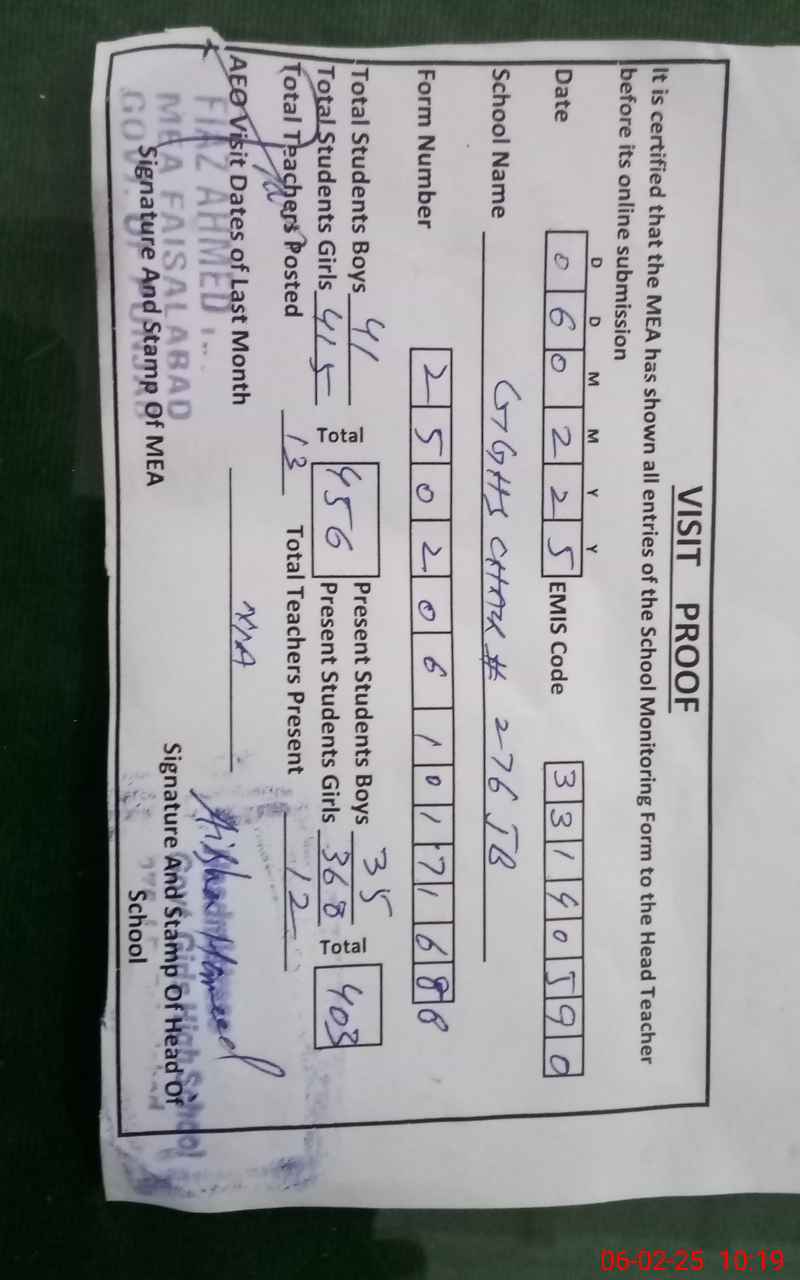 VISIT PROOF
It is certified that the MEA has shown all entries of the School Monitoring Form to the Head Teacher
before its online submission
D D M M Y Y
Date 0 6 0 2 2 5 EMIS Code 3 3 1 4 0 5 9 0
School Name GGHS CHAK # 276 JB
Form Number 2 5 0 2 0 6 1 0 1 7 1 6 8 8
Total Students Boys 41 Present Students Boys 35
Total Students Girls 415 Total 456 Present Students Girls 368 Total 403
Total Teachers Posted 13 Total Teachers Present 12
AEO Visit Dates of Last Month N/A
FIAZ AHMED
MEA FAISALABAD
GOVT. OF PUNJAB
Signature And Stamp Of MEA
Govt. Girls High School
Signature And Stamp Of Head Of
School
06-02-25 10:19